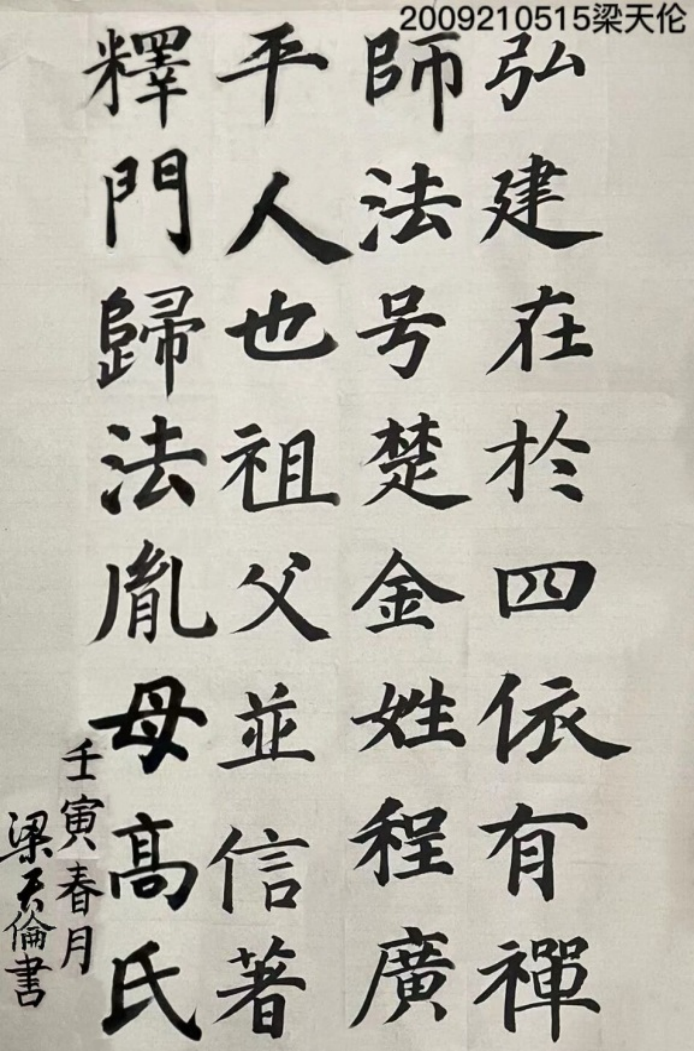 2009210515梁天伦
弘建在於四依有禪
師法号楚金姓程廣
平人也祖父並信著
釋門歸法胤母高氏
壬寅春月
梁天倫書